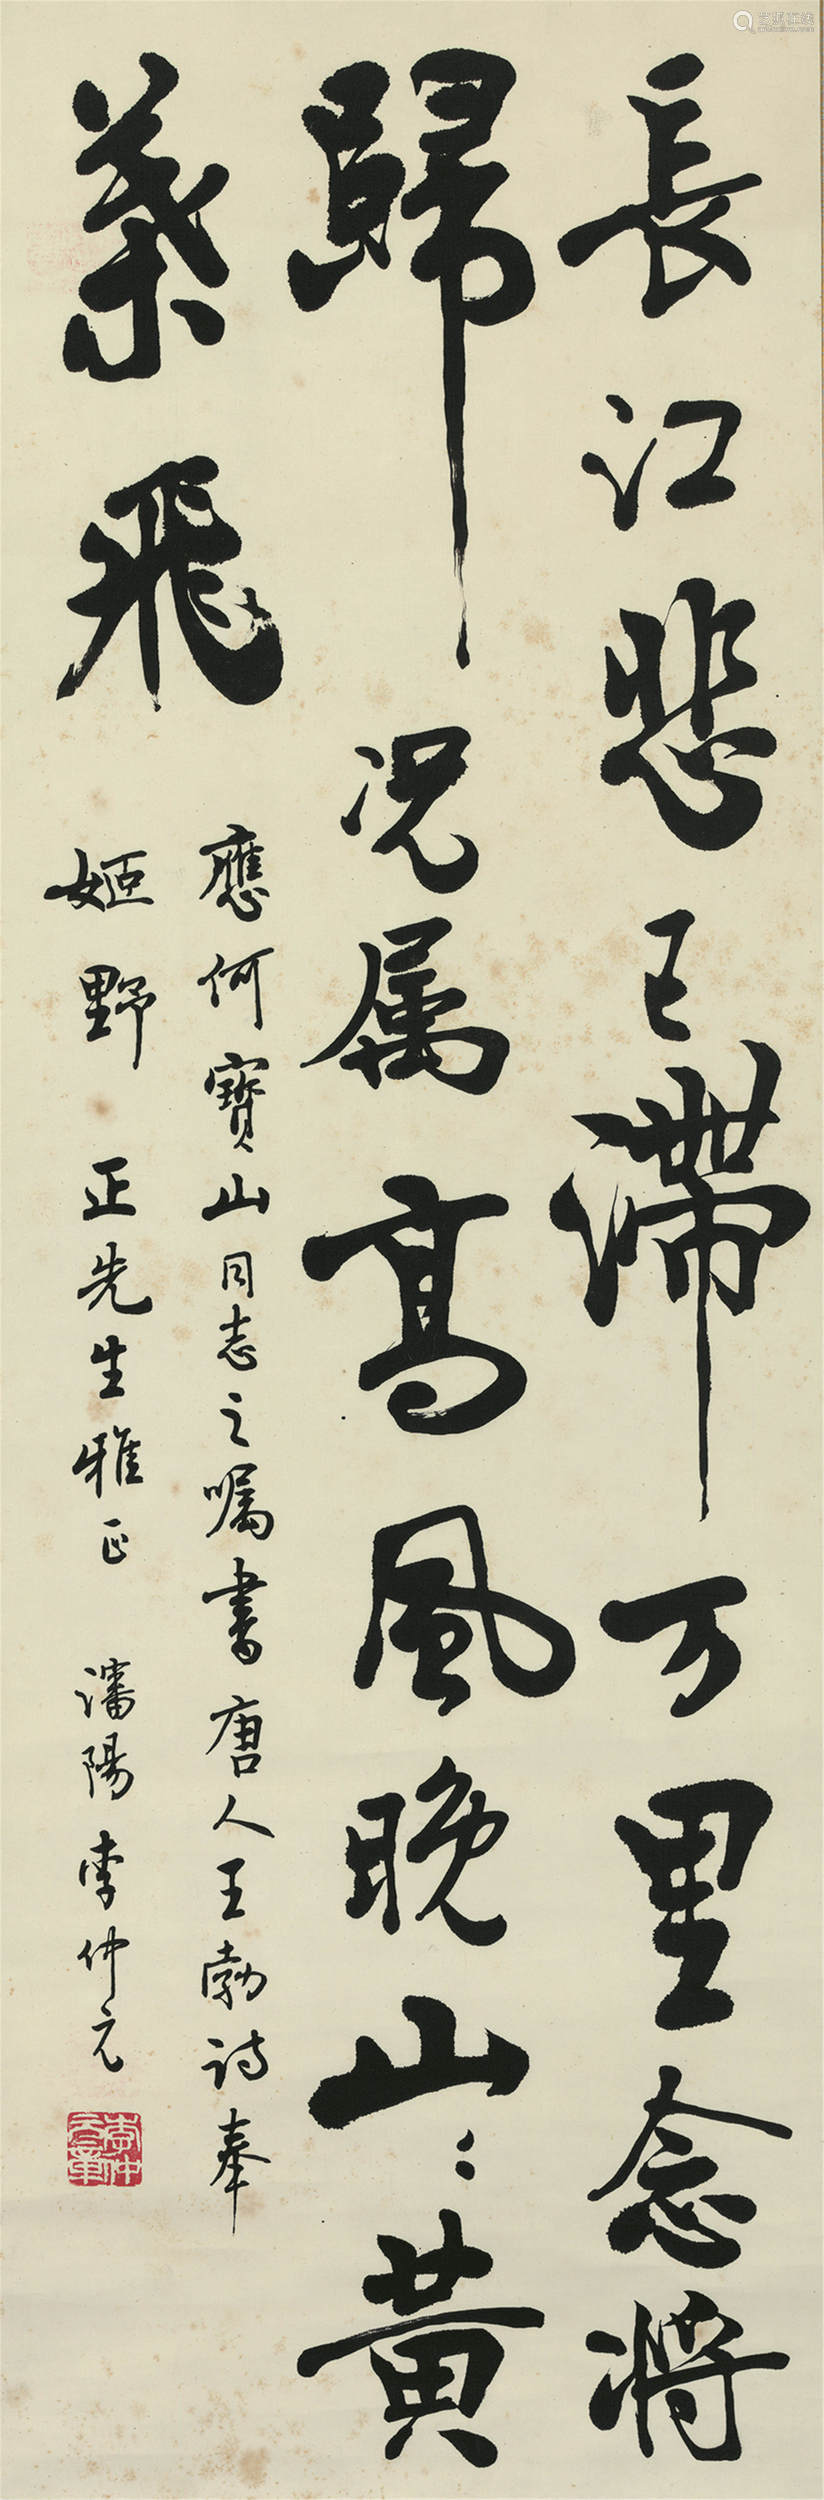 長江悲已滯万里念將
歸况属高風晚山〻黃
葉飛
應何寶山同志之嘱書唐人王勃詩奉
姬野 正先生雅正
瀋陽李仲元
李仲元章